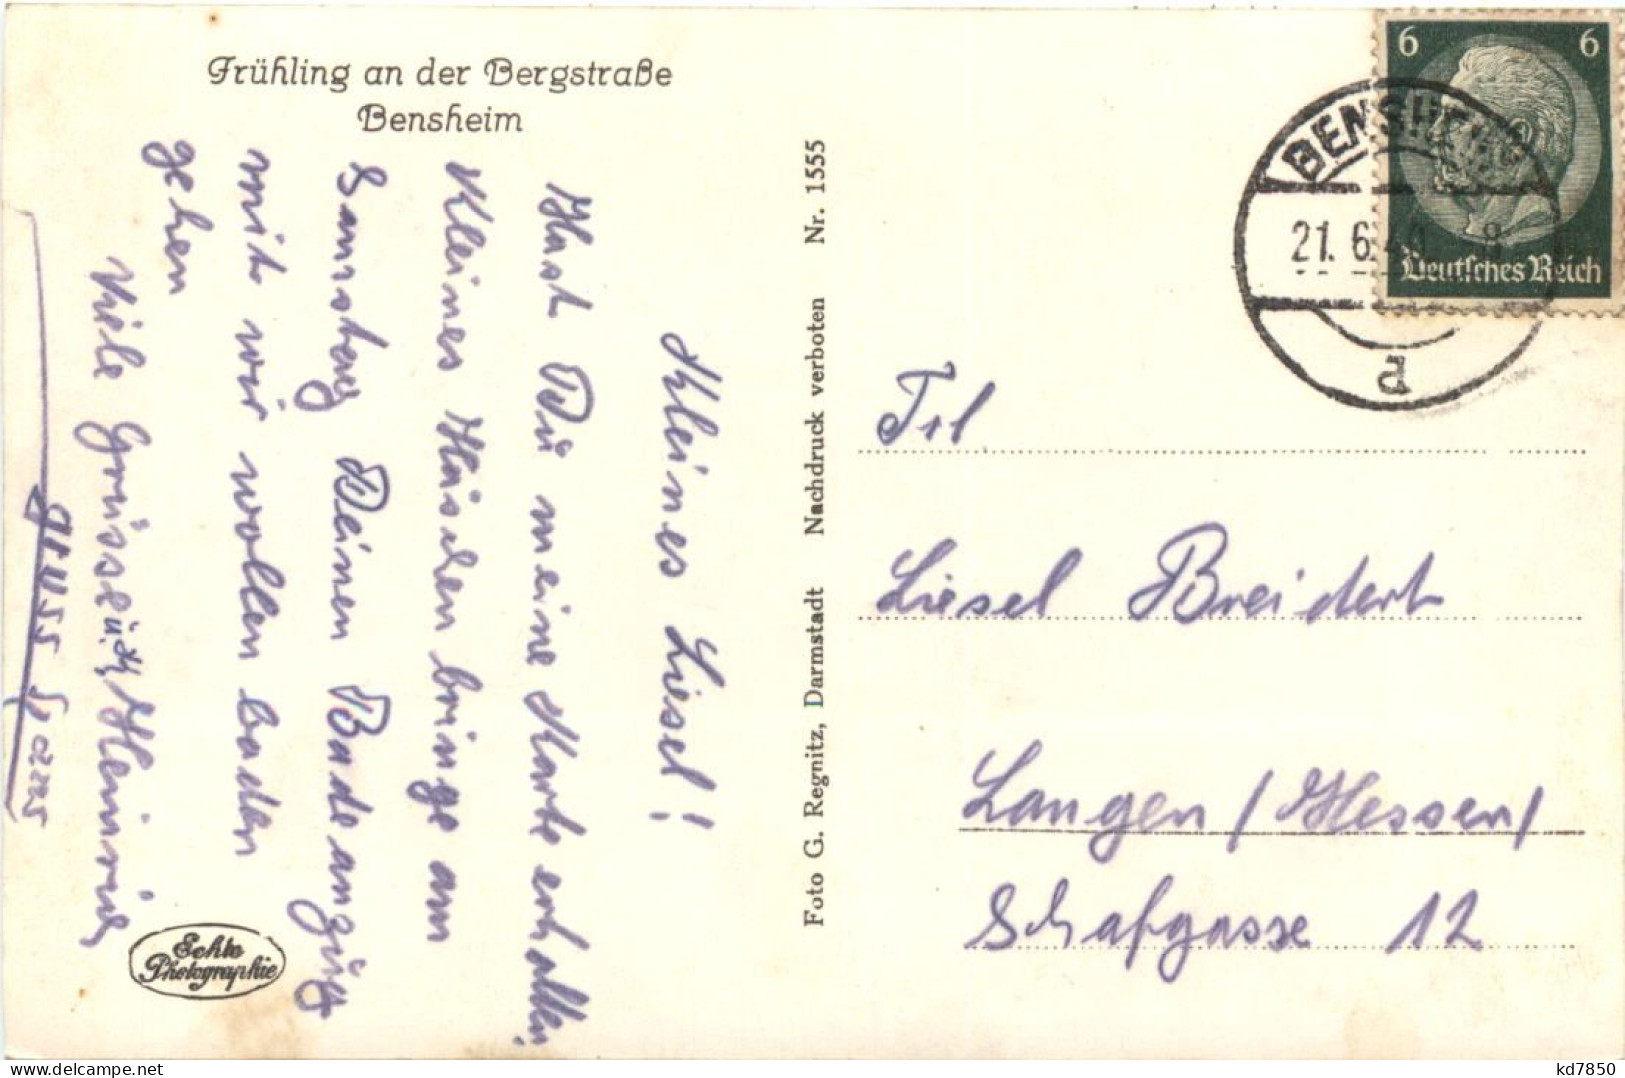 Frühling an der Bergstraße
Bensheim
Kleines Liesel!
Hast Du meine Karte erhalten.
Kleines Häschen bringe am
Samstag Deinen Badeanzug
mit wir wollen baden
gehen
Viele Grüsse
Heinrich
Gruss
Echte
Photographie
Foto G. Regnitz, Darmstadt Nachdruck verboten Nr. 1555
6 6
Deutsches Reich
BENSHEIM
21.6.40 8
d
Frl.
Liesel Breidert
Langen / Hessen /
Schafgasse 12
delcampe.net
kd7850